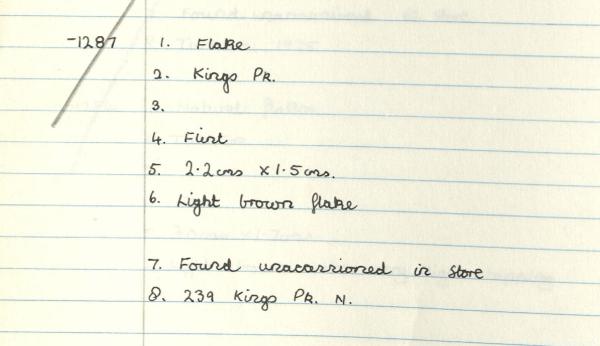 -1287 1. Flake
2. Kings Pk.
3.
4. Flint
5. 2.2cms x 1.5cms.
6. Light brown flake
7. Found unaccessioned in store
8. 239 Kings Pk. N.